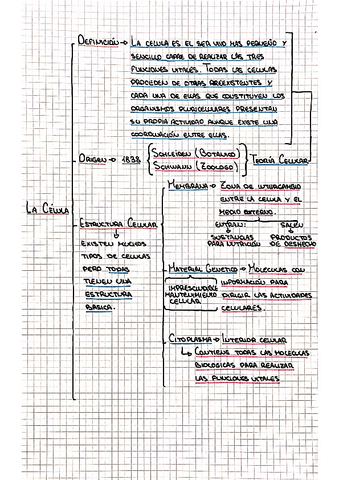 Definición → La célula es el ser vivo mas pequeño y
sencillo capaz de realizar las tres
funciones vitales. Todas las células
proceden de otras preexistentes y
cada una de ellas que constituyen los
organismos pluricelulares presentan
su propia actividad aunque existe una
coordinación entre ellas.
Origen → 1838
Schleiden (Botánico)
Schwann (Zoólogo)
Teoría Celular
La Célula
Estructura Celular
↳ Existen muchos
tipos de células
pero todas
tienen una
estructura
básica.
Membrana → Zona de intercambio
entre la célula y el
medio externo.
entran:
sustancias
para nutrición
salen
productos
de deshecho
Material Genético → Moléculas con
información para
dirigir las actividades
celulares.
imprescindible
mantenimiento
celular
Citoplasma → Interior celular
↳ Contiene todas las moleculas
biologicas para realizar
las funciones vitales